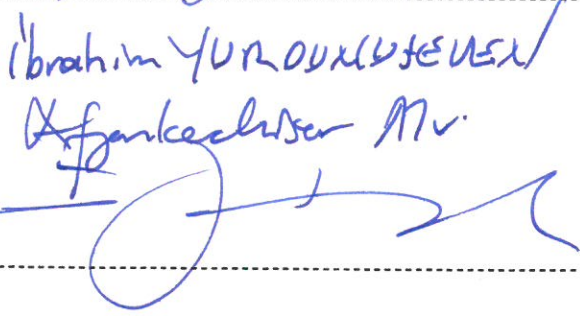 İbrahim YURDUNUSEVEN
Afyonkarahisar Mv.